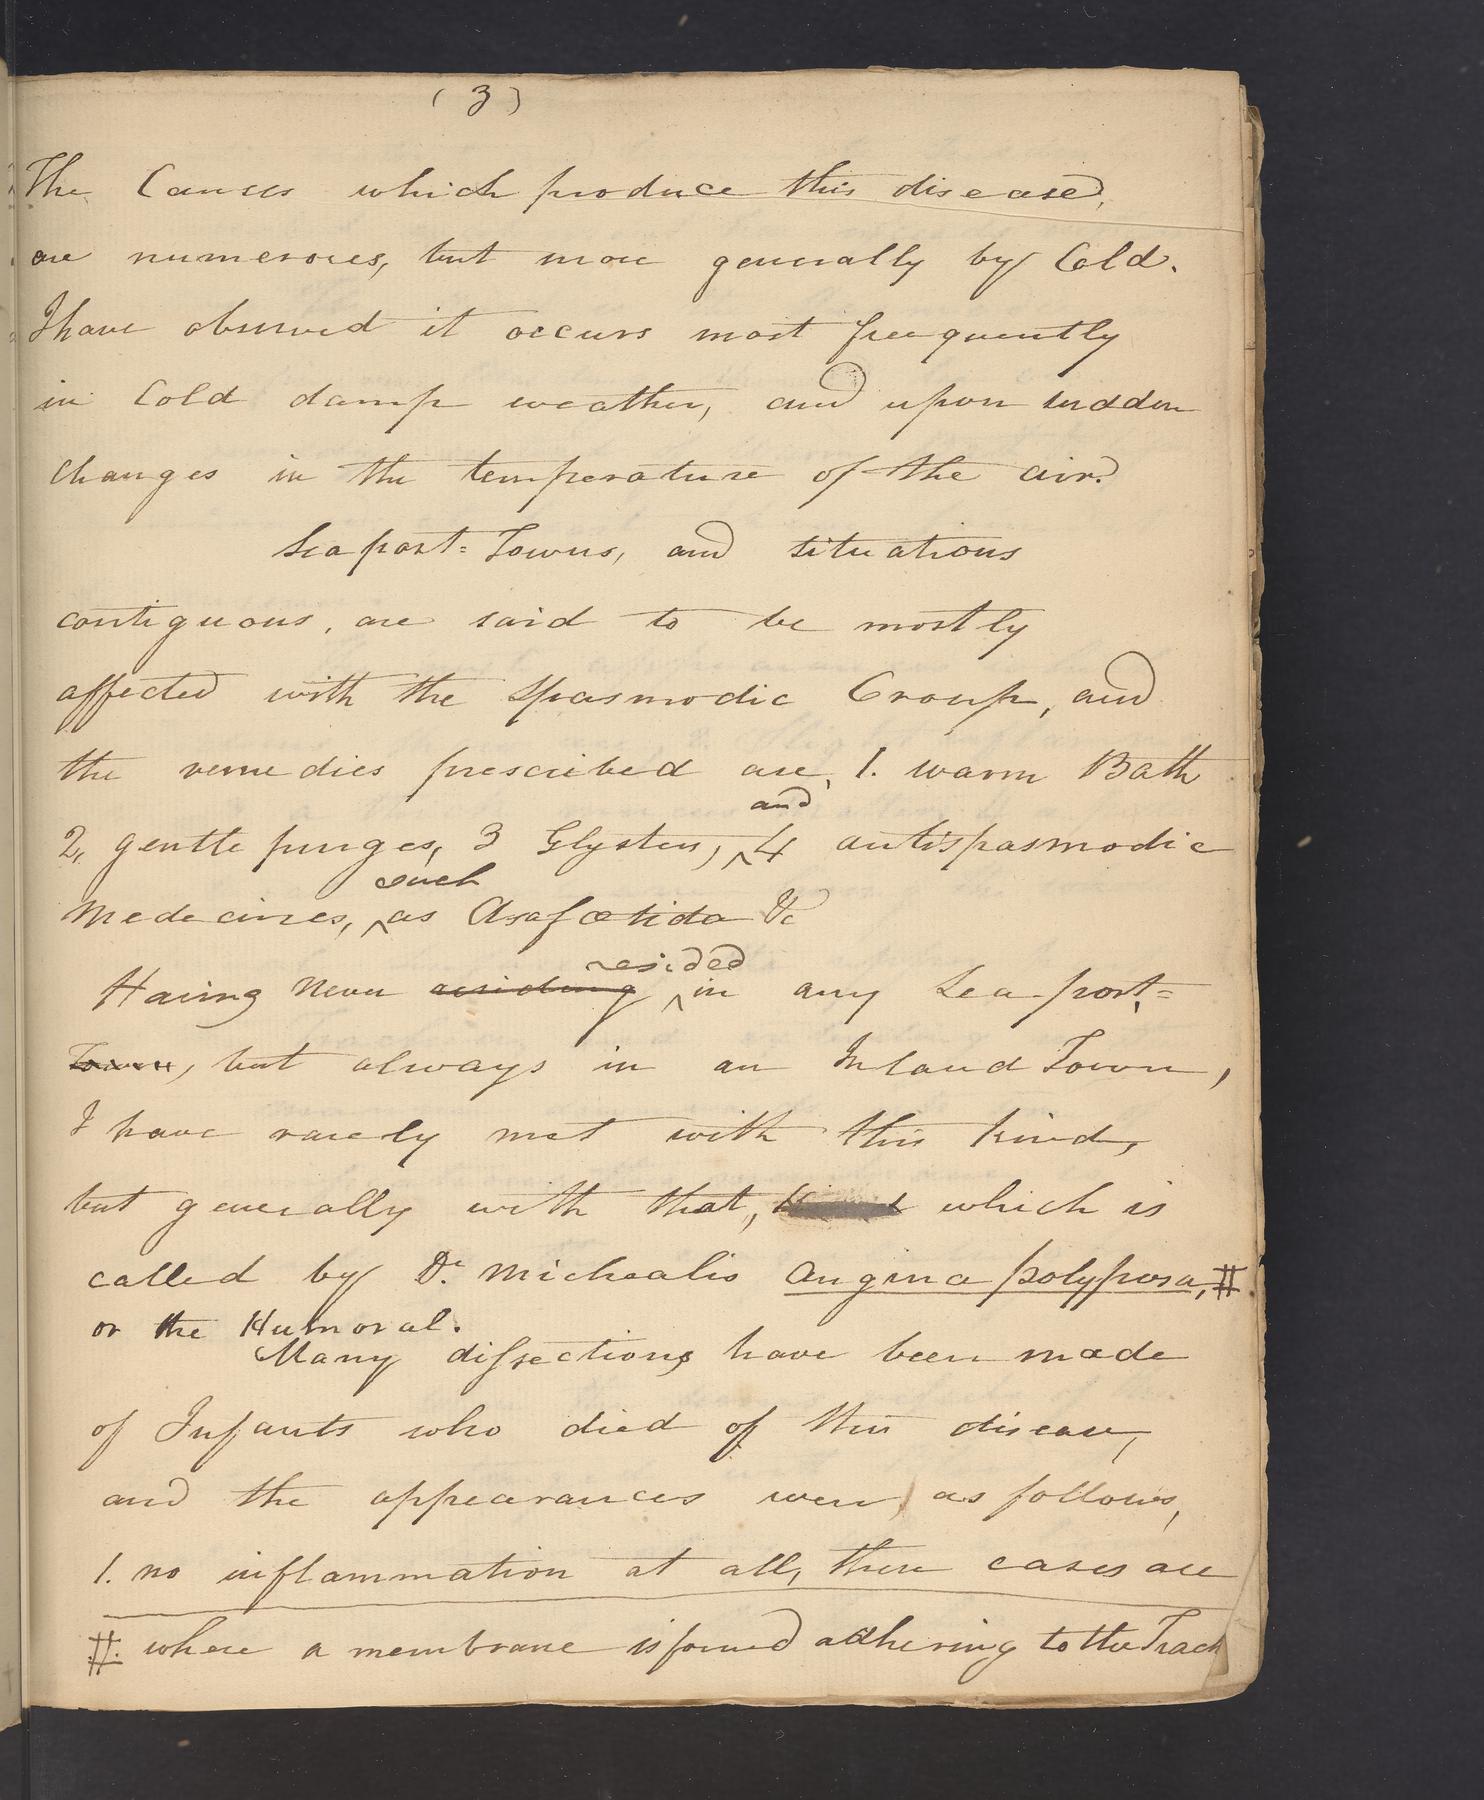 (3)
The Causes which produce this disease,
are numerous, but more generally by Cold.
I have observed it occurs most freequently
in Cold damp weather, and upon sudden
changes in the temperature of the air.
Sea port=Towns, and situations
contiguous, are said to be mostly
affected with the Spasmodic Croup, and
the remedies prescribed are, 1. warm Bath
and
2, gentle purges, 3 Glysters, ^ 4 antispasmodic
such
Medecines, ^ as Asafœtida &c
resided
Having never residing ^ in any Sea-port,=
Town, but always in an Inland Town,
I have rarely met with this kind,
but generally with that, which is
called by Dr. Michealis Angina polyposa, #
or the Humoral.
Many dissections have been made
of Infants who died of this disease,
and the appearances were, as follows,
1. no inflammation at all, these cases are
#. where a membrane is formed adhering to the Trach